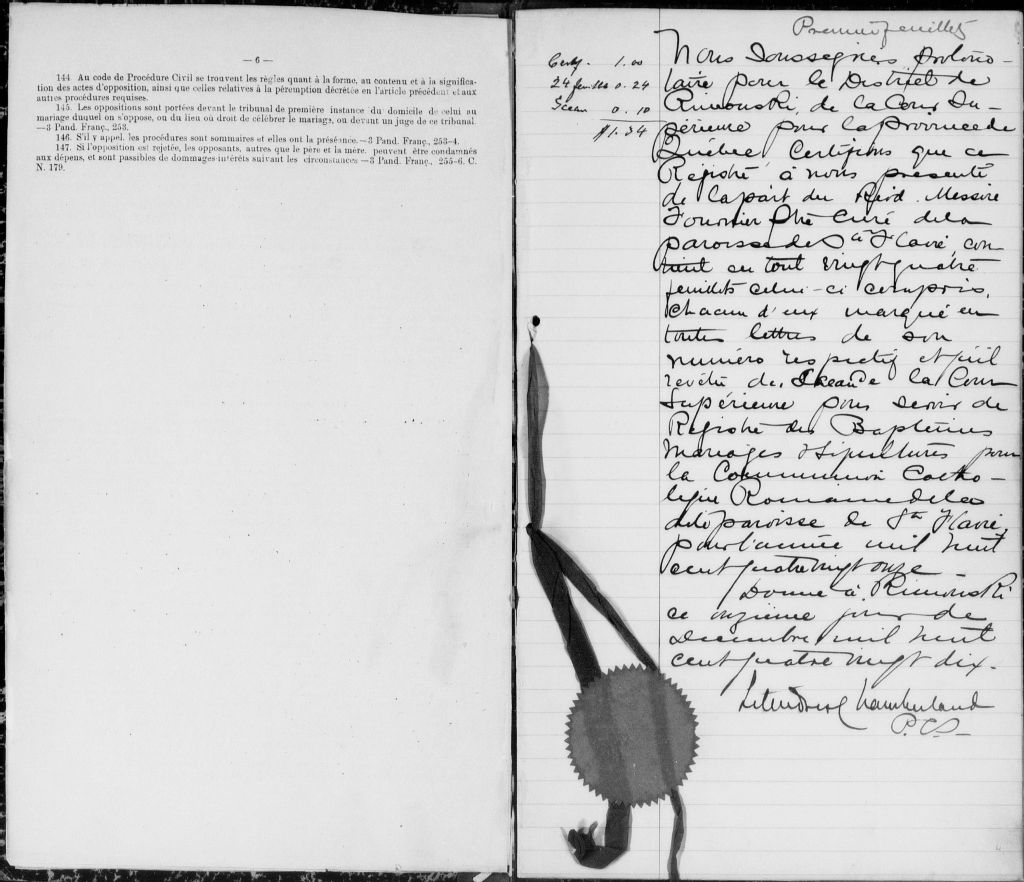 — 6 —
144 Au code de Procédure Civil se trouvent les règles quant à la forme, au contenu et à la significa-
tion des actes d'opposition, ainsi que celles relatives à la péremption décrétée en l'article précédent et aux
autres procédures requises.
145. Les oppositions sont portées devant le tribunal de première instance du domicile de celui au
mariage duquel on s'oppose, ou du lieu où droit de célébrer le mariage, ou devant un juge de ce tribunal.
—3 Pand. Franç., 253.
146. S'il y appel, les procédures sont sommaires et elles ont la préséance.—3 Pand. Franç., 253-4.
147. Si l'opposition est rejetée, les opposants, autres que le père et la mère, peuvent être condamnés
aux dépens, et sont passibles de dommages-intérêts suivant les circonstances—3 Pand. Franç., 255-6. C.
N. 179.
Premier feuillet
Certf. 1.00
24 feuillets 0.24
Sceau 0.10
$1.34
Nous Soussignés Protono-
taire pour le District de
Rimouski, de la Cour Su-
périeure pour la province de
Québec Certifions que ce
Registre à nous présenté
de la part du Révd. Messire
Fournier Ptre Curé de la
paroisse de Ste Flavie, con-
tient en tout vingt quatre
feuillets celui-ci compris,
chacun d'eux marqué en
toutes lettres de son
numéro respectif et qu'il
revêtu du Sceau de la Cour
Supérieure pour servir de
Registre des Baptêmes
Mariages & Sépultures pour
la Communion Catho-
lique Romaine de la
dite paroisse de Ste Flavie,
pour l'année mil huit
cent quatre vingt onze
Donné à Rimouski
ce onzième jour de
Decembre mil huit
cent quatre vingt dix.
Letendre & Chamberland
P.C.S.